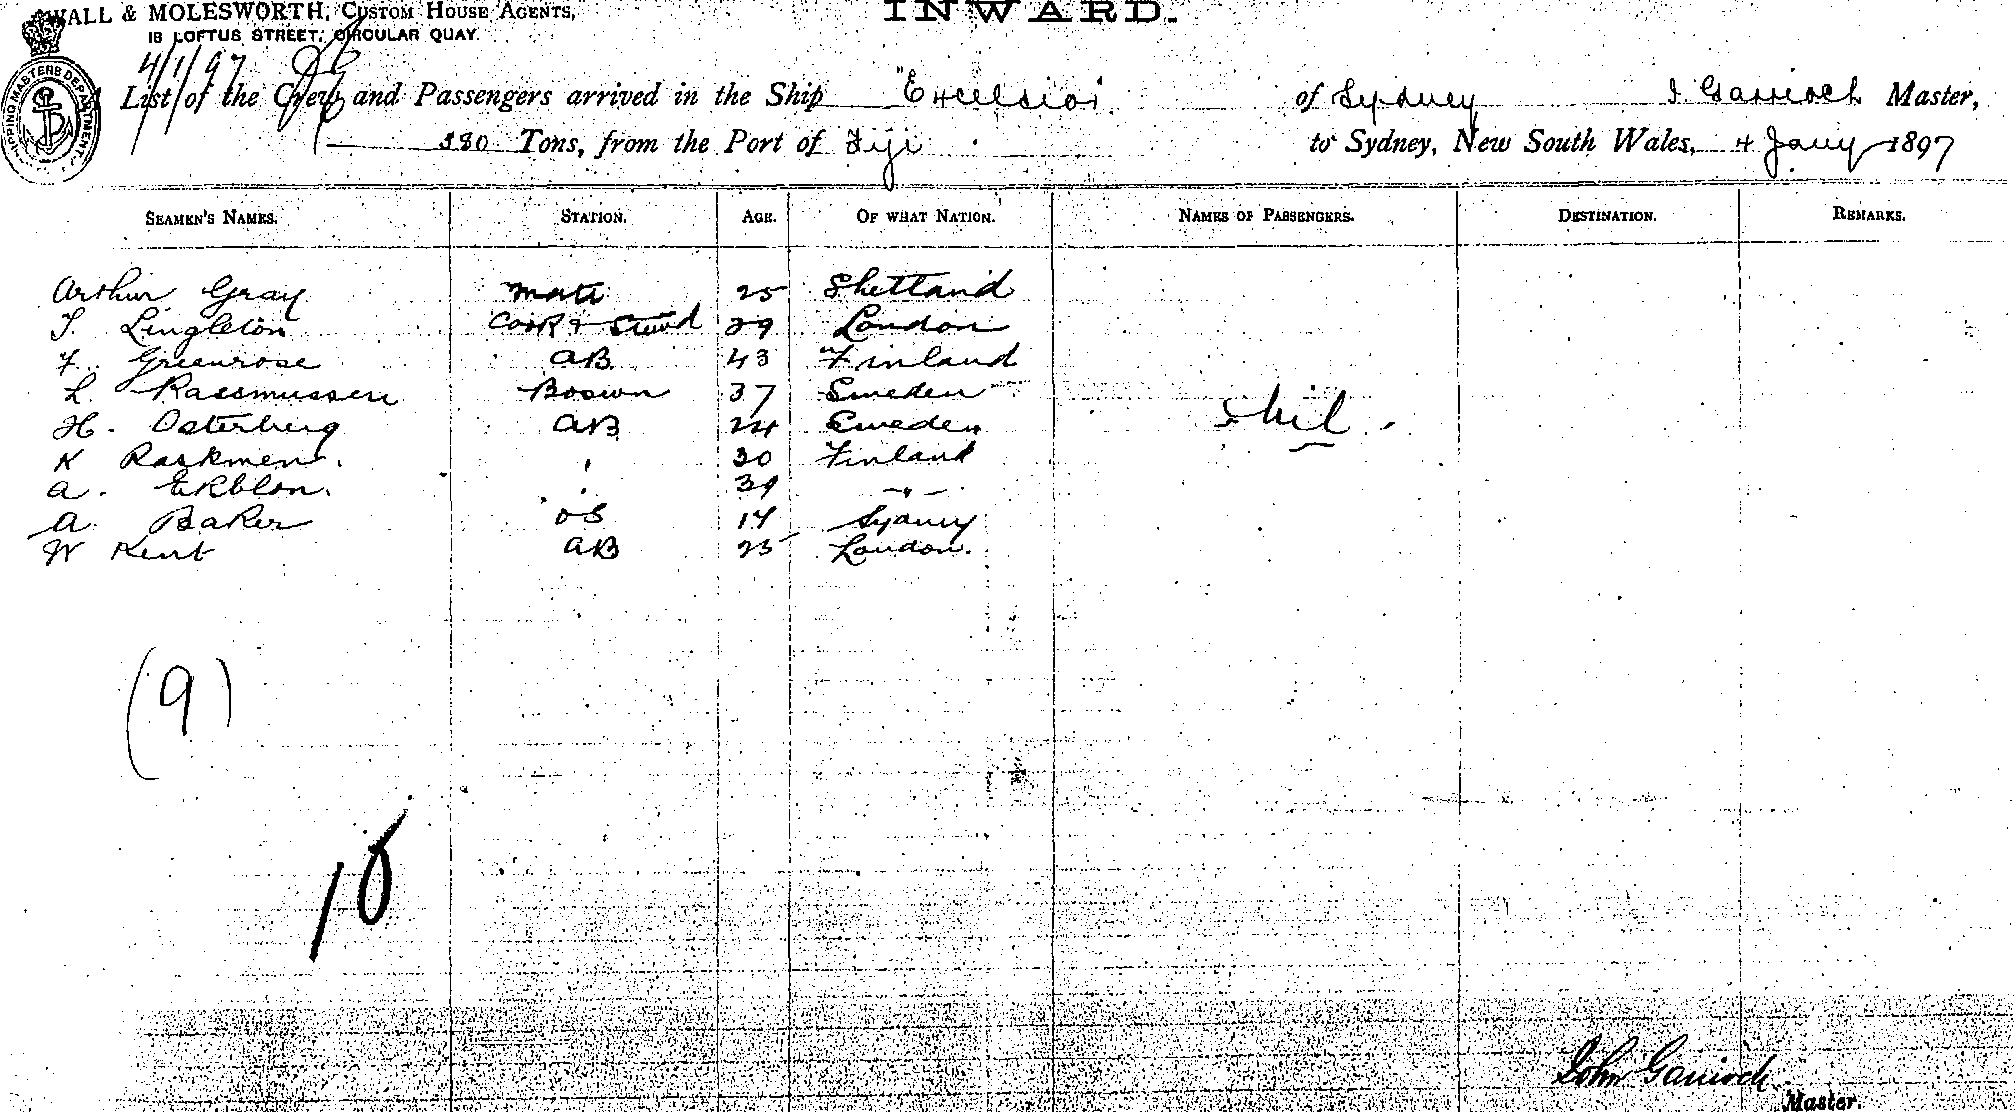 WALL & MOLESWORTH, CUSTOM HOUSE AGENTS,
18 LOFTUS STREET, CIRCULAR QUAY.
INWARD.
4/1/97
SHIPPING MASTERS DEPARTMENT
List of the Crew and Passengers arrived in the Ship "Excelsior" of Sydney J. Garrioch Master,
380 Tons, from the Port of Fiji to Sydney, New South Wales, 4 Jany 1897
SEAMEN'S NAMES. STATION. AGE. OF WHAT NATION. NAMES OF PASSENGERS. DESTINATION. REMARKS.
Arthur Gray Mate 25 Shetland
T. Lingleton Cook & Stewd 29 London
F. Greenrose AB 43 Finland
L. Rassmussen Boswn 37 Sweden
Nil
H. Osterberg AB 24 Sweden
K 30 Finland
A. Ekblon. 39 - " -
A. Baker OS 17 Sydney
W Kent AB 25 London.
(9)
10
John Garrioch
Master.